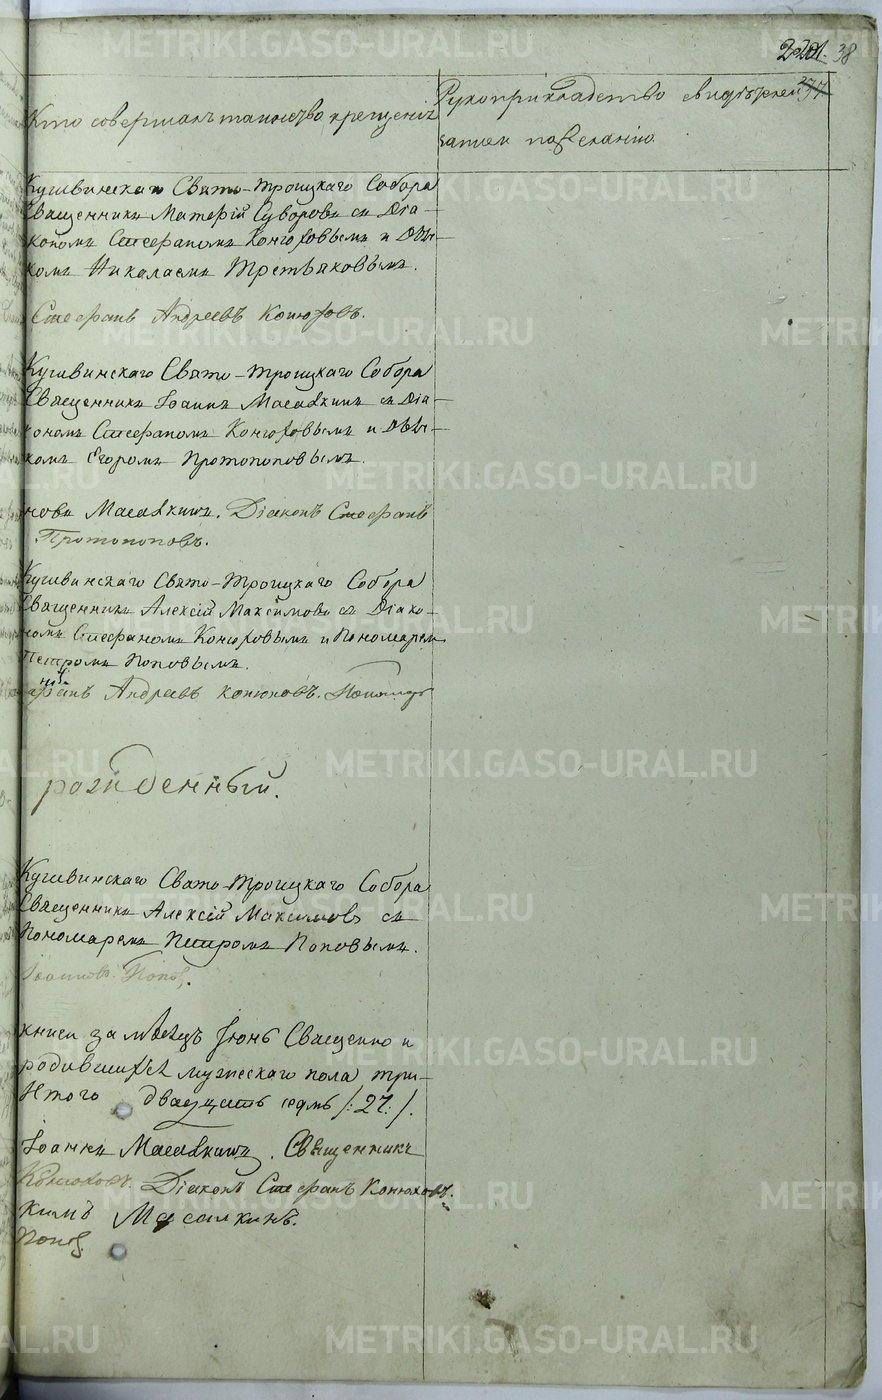 38
Кто совершалъ таинство крещенія
Рукоприкладство свидѣтелей
записи по желанію
Кушвинскаго Свято-Троицкаго Собора
Священникъ Суворовъ съ Діа-
кономъ Стефаномъ Конюховымъ и Дья-
комъ Николаемъ Третьяковымъ.
Стефанъ Андреевъ Конюховъ.
Кушвинскаго Свято-Троицкаго Собора
Священникъ Іоаннъ Масалкинъ съ Діа-
кономъ Стефаномъ Конюховымъ и Дьяч-
комъ Егоромъ Протопоповымъ.
Масалкинъ. Діаконъ Стефанъ
Протопоповъ.
Кушвинскаго Свято-Троицкаго Собора
Священникъ Алексій Максимовъ съ Діако-
номъ Стефаномъ Конюховымъ и Пономарем
Петромъ Поповымъ.
Андреевъ Конюховъ.
рожденный.
Кушвинскаго Свято-Троицкаго Собора
Священникъ Алексій Максимовъ съ
Пономаремъ Петромъ Поповымъ.
Попов.
книги за мѣсяцъ Іюнь Священно и
родившихся мужескаго пола три-
Итого двадцать седмь /:27:/.
Іоаннъ Масалкинъ. Священникъ
Конюховъ. Діаконъ Стефанъ Конюховъ.
кимъ Масалкинъ.
Попов
METRIKI.GASO-URAL.RU